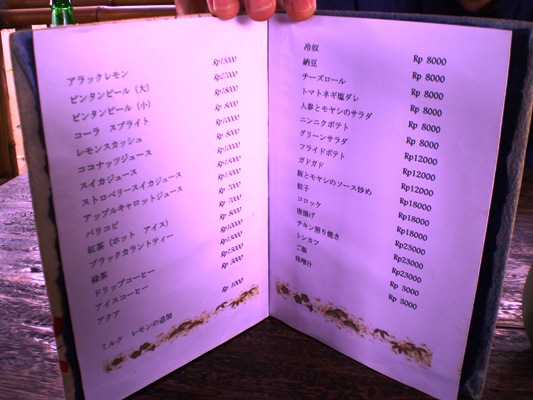 アラックレモン Rp15000
ビンタンビール（大） Rp27000
ビンタンビール（小） Rp18000
コーラ スプライト Rp 8000
レモンスカッシュ Rp10000
ココナッツジュース Rp 8000
スイカジュース Rp10000
ストロベリースイカジュース Rp15000
アップルキャロットジュース Rp15000
バリコピ Rp 7000
紅茶（ホット アイス） Rp 7000
ブラックカラントティー Rp 8000
緑茶 Rp10000
ドリップコーヒー Rp15000
アイスコーヒー Rp15000
アクア Rp 5000
ミルク レモンの追加 Rp 1000
冷奴 Rp 8000
納豆 Rp 8000
チーズロール Rp 8000
トマトネギ塩ダレ Rp 8000
人参とモヤシのサラダ Rp 8000
ニンニクポテト Rp 8000
グリーンサラダ Rp12000
フライドポテト Rp12000
ガドガド Rp12000
豚とモヤシのソース炒め Rp18000
餃子 Rp18000
コロッケ Rp18000
唐揚げ Rp23000
チキン照り焼き Rp23000
トンカツ Rp23000
ご飯 Rp 3000
味噌汁 Rp 5000